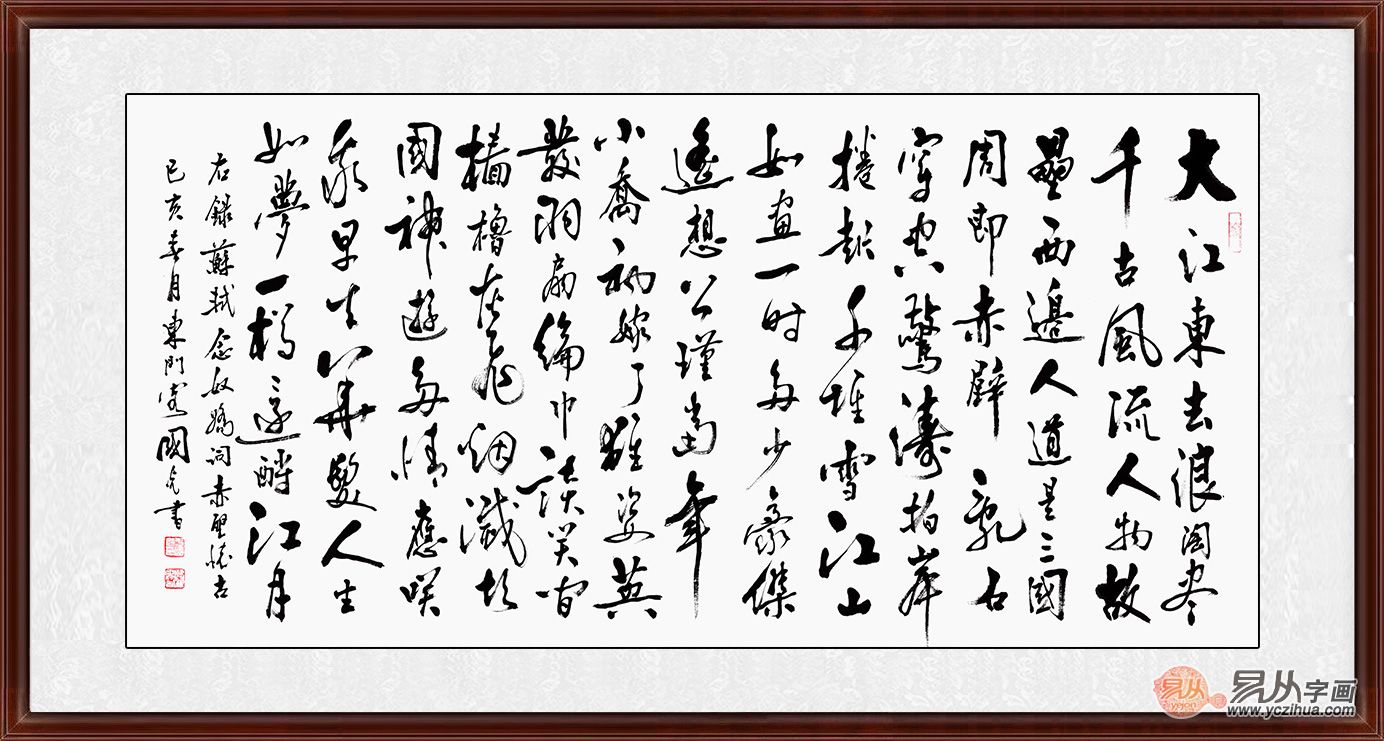 大江東去浪淘尽
千古風流人物故
壘西邊人道是三國
周郎赤壁乱石
穿空驚濤拍岸
捲起千堆雪江山
如畫一时多少豪傑
遙想公瑾當年
小喬初嫁了雄姿英
發羽扇綸巾談笑間
檣櫓灰飛烟滅故
國神遊多情應笑
我早生华髮人生
如夢一樽還酹江月
右錄蘇軾念奴嬌词赤壁懷古
己亥春月東門客國亮書
易从
yejon
易从字画
www.yczihua.com